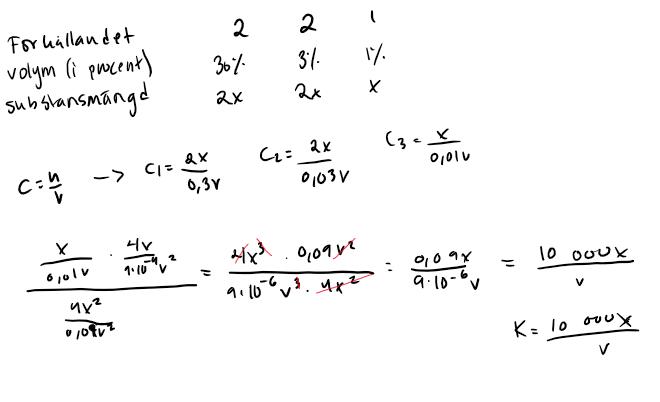 Förhållandet 2 2 1
volym (i procent) 30% 3% 1%
substansmängd 2x 2x x
C = n/v -> C1 = 2x/0,3v C2 = 2x/0,03v C3 = x/0,01v
(x/0,01v · 4x/9·10^-4v^2)/(4x^2/0,09v^2) = (4x^3 · 0,09v^2)/(9·10^-6v^3 · 4x^2) = 0,09x/9·10^-6v = 10 000x/v
K = 10 000x/v